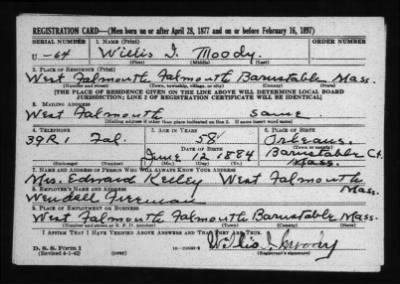 REGISTRATION CARD—(Men born on or after April 28, 1877 and on or before February 16, 1897)
SERIAL NUMBER 1. NAME (Print) ORDER NUMBER
U -64 Willis I. Moody.
(First) (Middle) (Last)
2. PLACE OF RESIDENCE (Print)
West Falmouth Falmouth Barnstable Mass.
(Number and street) (Town, township, village, or city) (County) (State)
[THE PLACE OF RESIDENCE GIVEN ON THE LINE ABOVE WILL DETERMINE LOCAL BOARD
JURISDICTION; LINE 2 OF REGISTRATION CERTIFICATE WILL BE IDENTICAL]
3. MAILING ADDRESS
West Falmouth same
[Mailing address if other than place indicated on line 2. If same insert word same]
4. TELEPHONE 5. AGE IN YEARS 6. PLACE OF BIRTH
39R1 Fal. 58 Orleans
DATE OF BIRTH
June 12 1884 Barnstable Ct.
Mass
(Exchange) (Number) (Mo.) (Day) (Yr.) (State or country)
7. NAME AND ADDRESS OF PERSON WHO WILL ALWAYS KNOW YOUR ADDRESS
Mrs. Edward Kelley West Falmouth
Mass.
8. EMPLOYER'S NAME AND ADDRESS
Wendall Freeman
9. PLACE OF EMPLOYMENT OR BUSINESS
West Falmouth Falmouth Barnstable Mass.
(Number and street or R. F. D. number) (Town) (County) (State)
I AFFIRM THAT I HAVE VERIFIED ABOVE ANSWERS AND THAT THEY ARE TRUE.
D. S. S. Form 1
(Revised 4-1-42) (over) Willis I. Moody
(Registrant's signature)